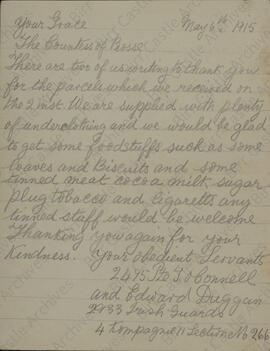 Your Grace May 6th 1915
The Countess of Rosse
There are two of us writing to thank you
for the parcels which we received on
the 2 inst. We are supplied with plenty
of underclothing and we would be glad
to get some foodstuffs such as some
loaves and Biscuits and some
tinned meat cocoa milk sugar
plug tobacco and Cigaretts any
tinned stuff would be welcome
Thanking you again for your
Kindness. Your obedient Servants
2475 Pte J. O Connell
and Edward Dreggan
Irish Guards
4 Kompagnie 11 Section No 266